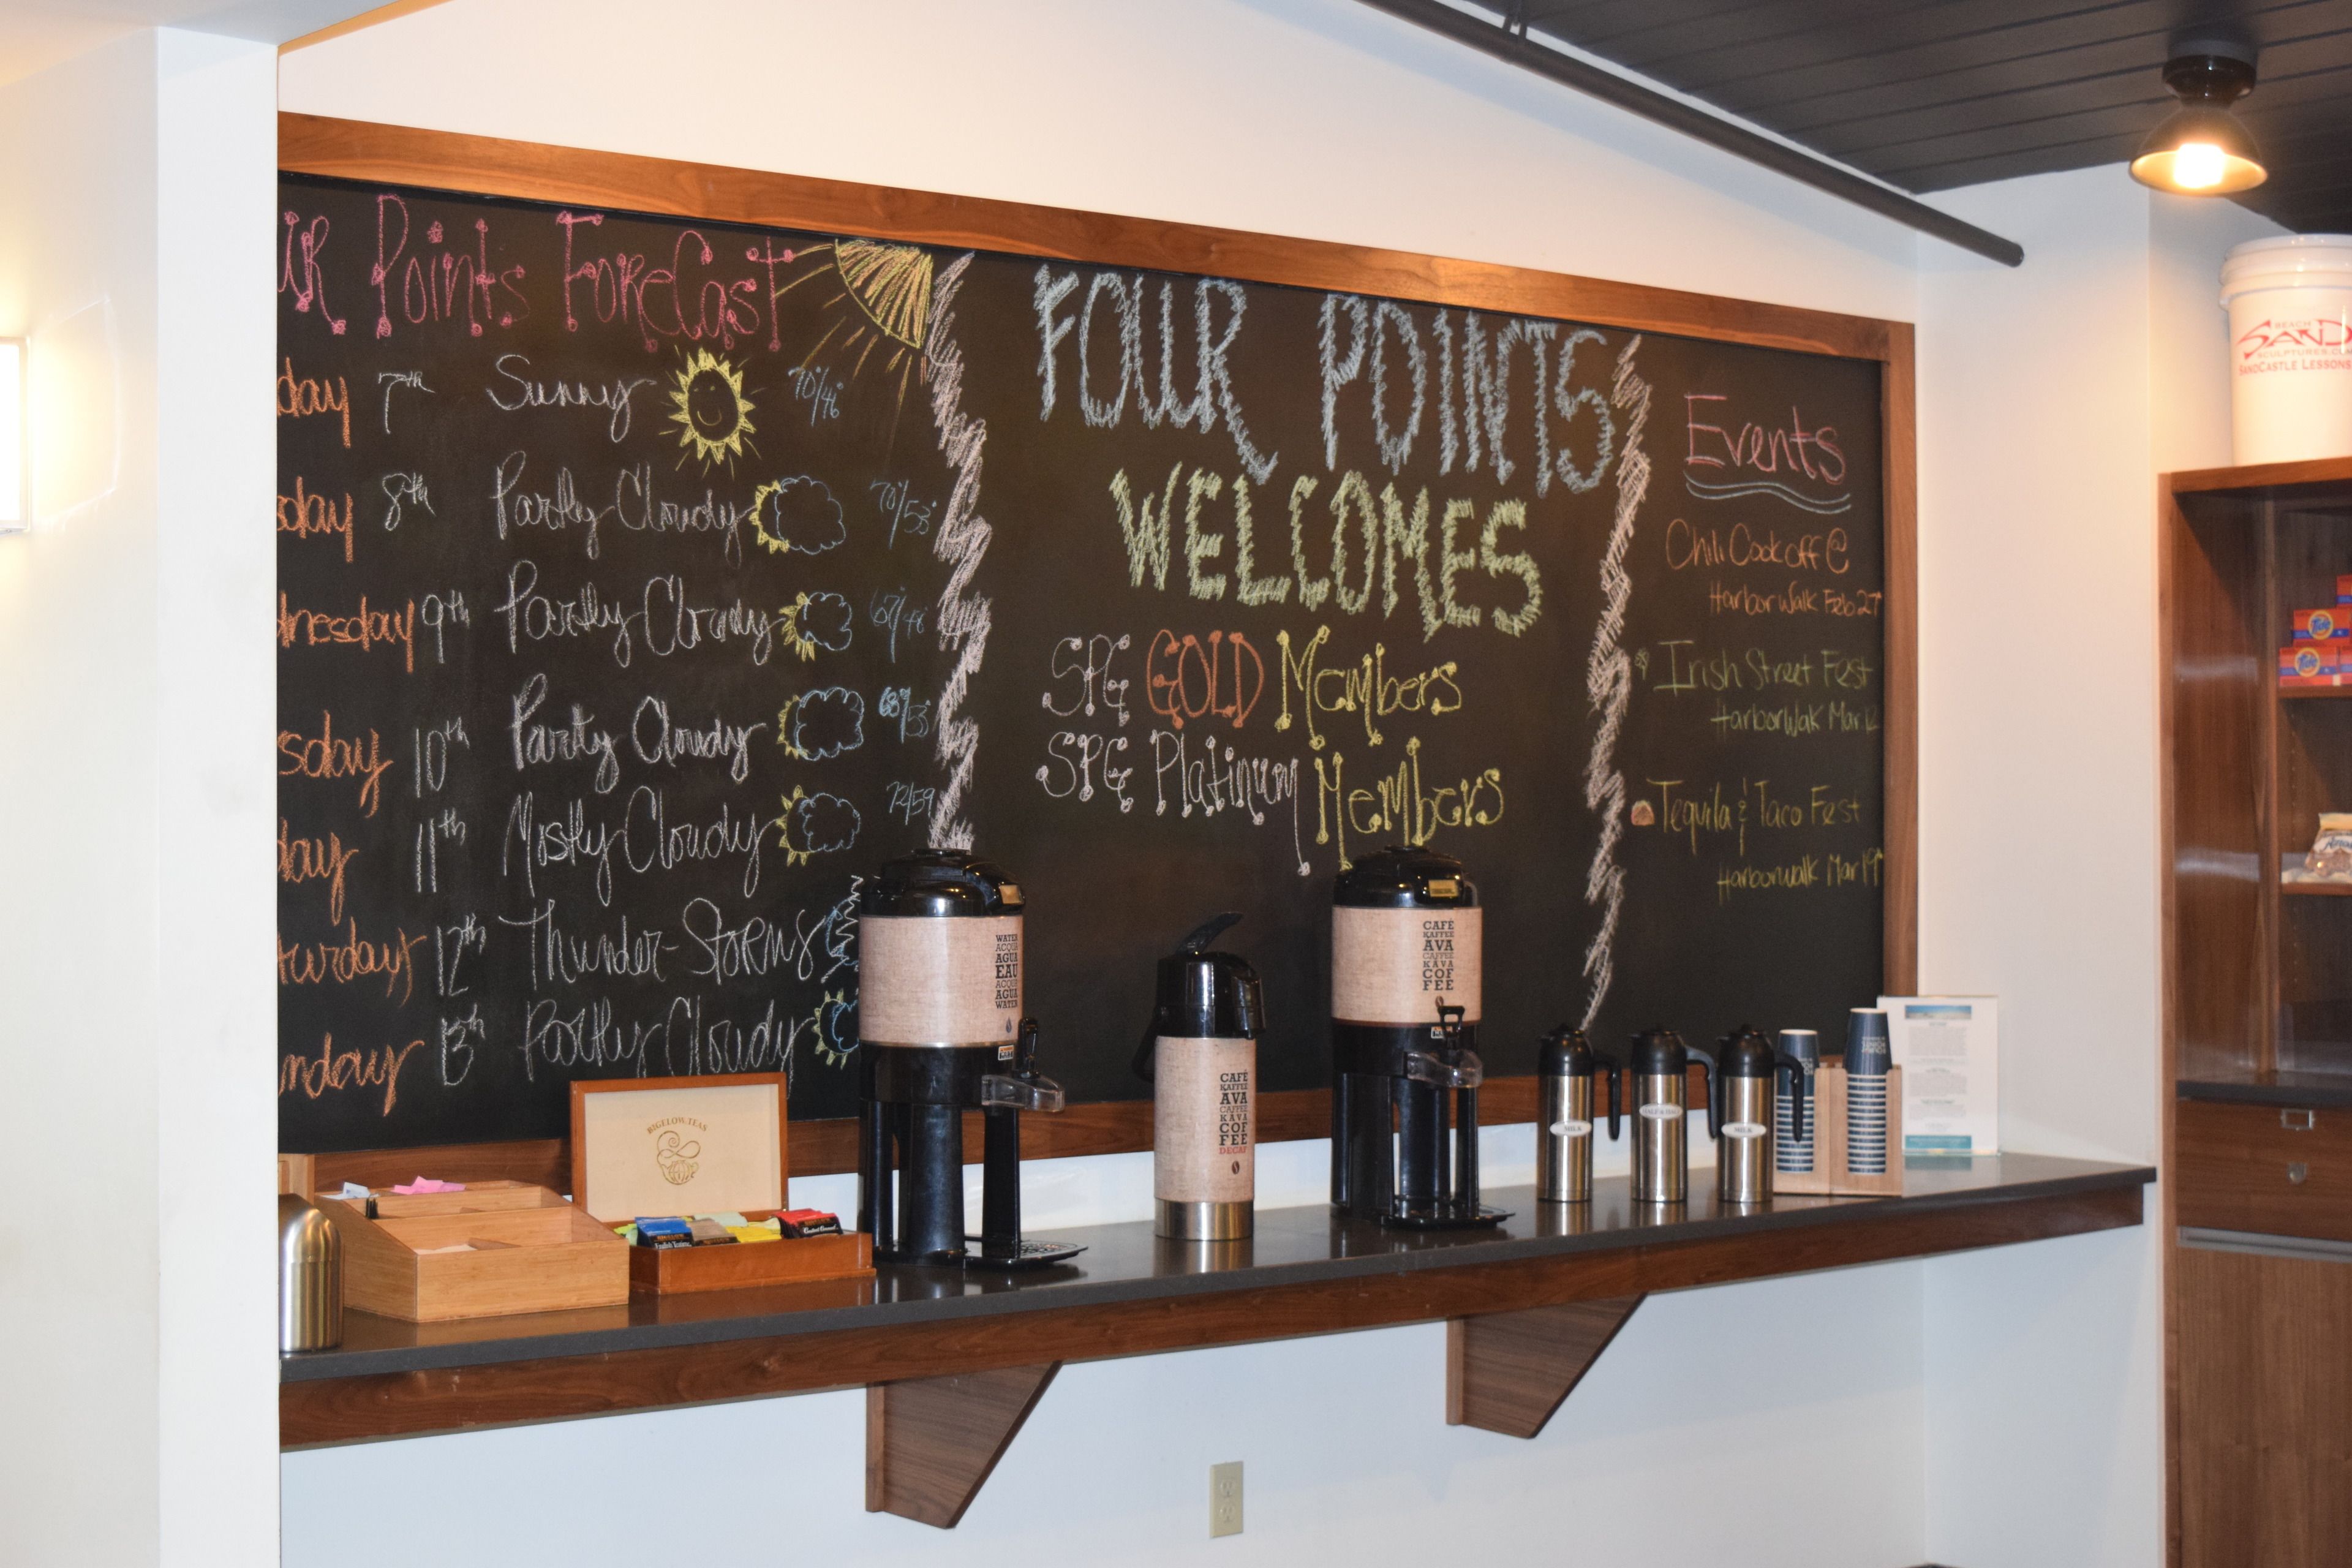 UR Points ForeCast
day 7TH Sunny 70°/46°
sday 8th Partly Cloudy 70°/53°
dnesday 9th Partly Cloudy 67°/48°
sday 10th Party Cloudy
day 11th Mostly Cloudy 72/59
turday 12th Thunder-Storms
nday 13th Partly Cloudy
FOUR POINTS
WELCOMES
SPG GOLD Members
SPG Platinum Members
Events
Chili Cook off @
Harbor Walk Feb 27th
Irish Street Fest
HarborWalk Mar 12
Tequila & Taco Fest
Harborwalk Mar 19th
WATER
ACQUA
AGUA
EAU
ACQUA
AGUA
WATER
CAFÉ
KAFFEE
AVA
CAFFÈ
KAVA
COF
FEE
DECAF
CAFÉ
KAFFEE
AVA
CAFFÈ
KAVA
COF
FEE
BIGELOW TEAS
MILK
MILK
BEACH
SAND
SCULPTURES.CO
SANDCASTLE LESSONS
Tide
Tide